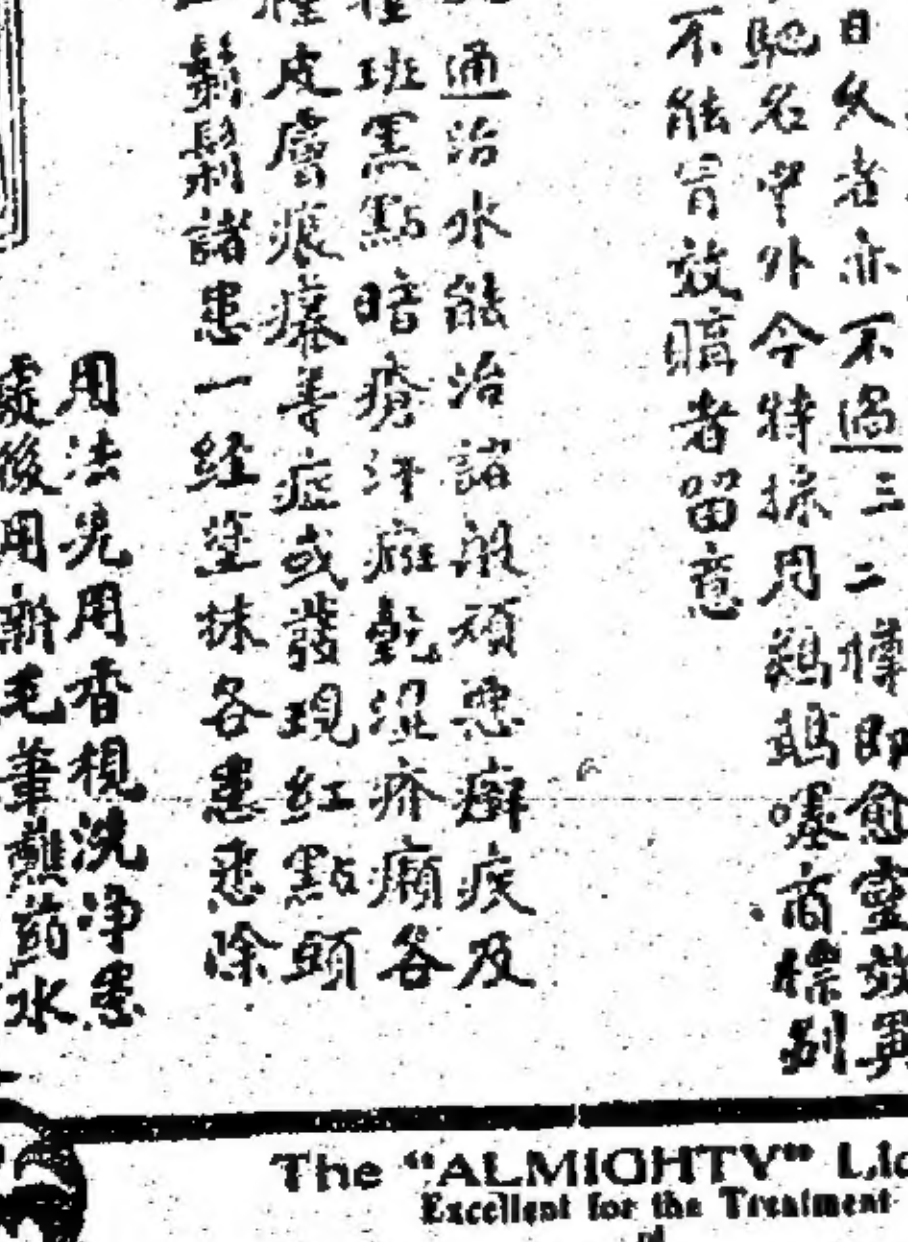 日久者亦不過三二樽即愈靈效異
馳名中外今特採用鸚鵡嘜商標別
不能冒效購者留意
通治水能治諸般頑惡癬疾及
班黑點暗瘡汗癍乾濕疥癩各
皮膚痕癢等症或發現紅點頭
鬍鬚諸患一経塗抹各患悉除
用法先用香枧洗净患
處後用新毛筆蘸药水
The "ALMIGHTY"
Excellent for the Treatment
of